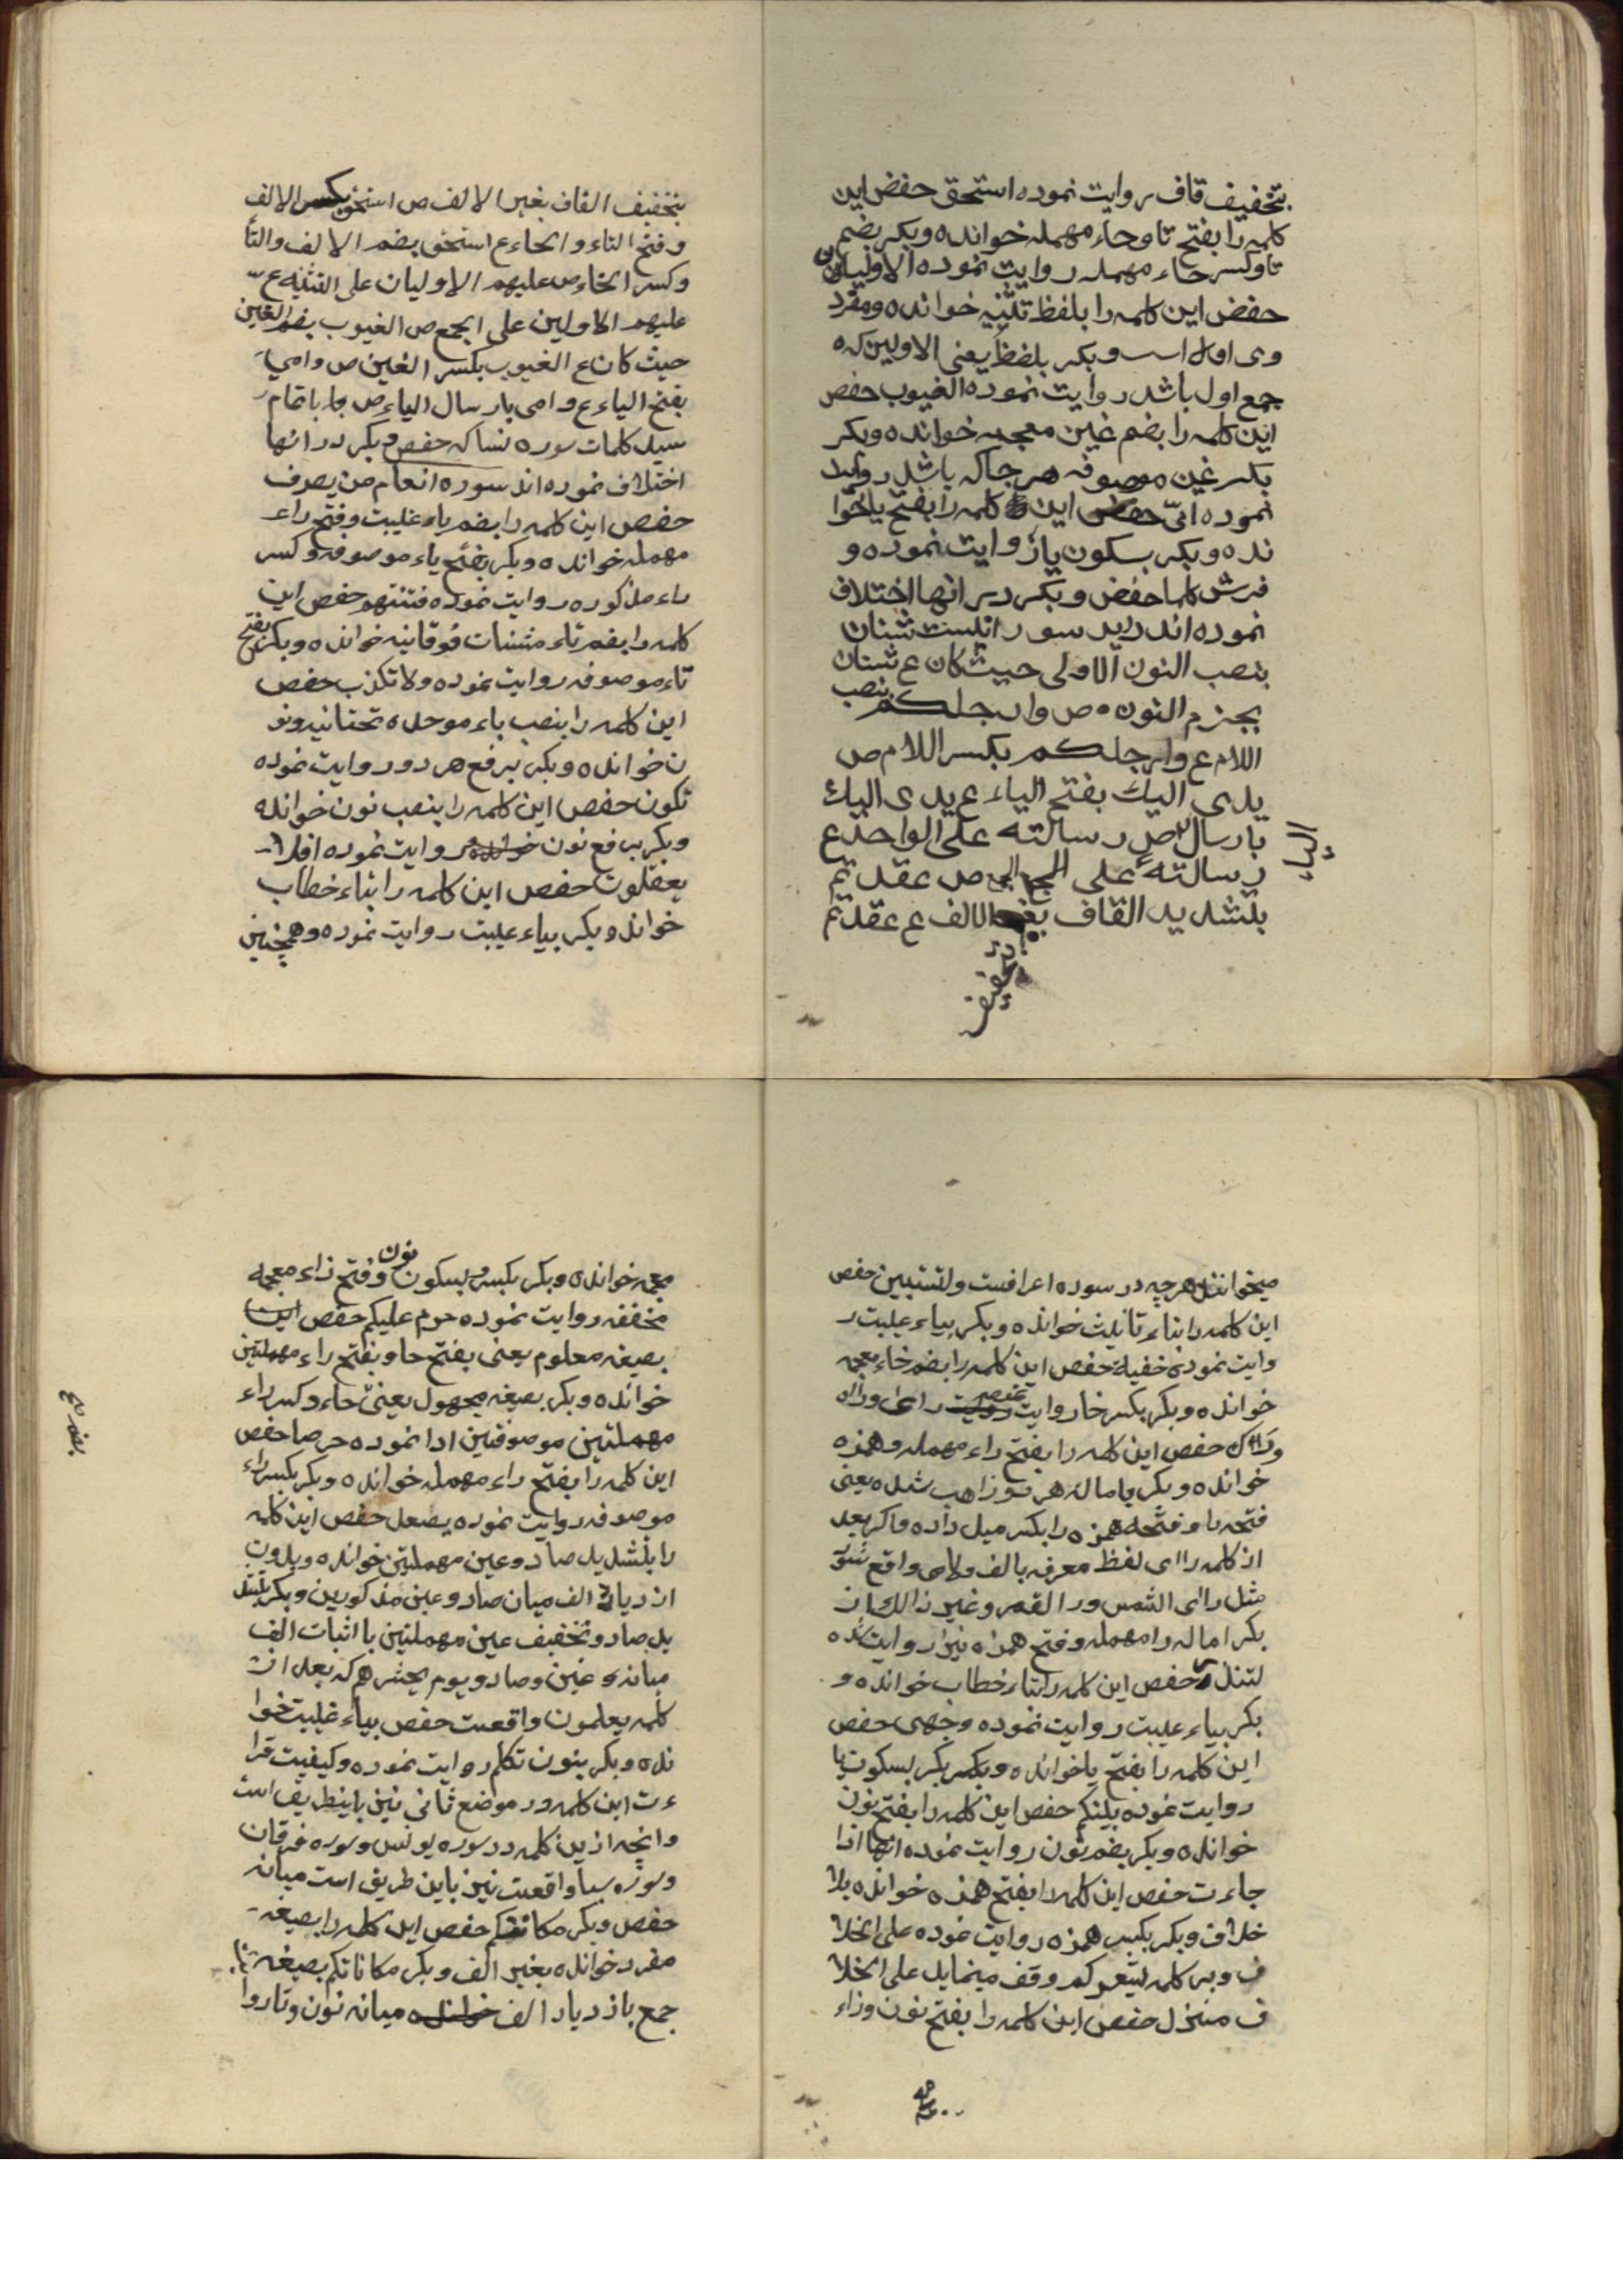 بتخفیف قاف روایت نموده استحق حفص این
کلمه را بفتح تا وحاء مهمله خوانده وبکر بضم
تا وکسر حاء مهمله روایت نموده الاولیان
حفص این کلمه را بلفظ تثنیه خوانده ومفرد
وی اول است وبکر بلفظ یعنی الاولین که
جمع اول باشد روایت نموده الغیوب حفص
این کلمه را بضم غین معجمه خوانده وبکر
بکسر غین موصوفه هر جا که باشد روایت
نموده انی حفص این کلمه را بفتح یا خوا
نده وبکر بسکون یا روایت نموده و
فرش کلما حفص وبکر در انها اختلاف
نموده اند در سور شنئان
بنصب النون الاولی حیث کان ع شنئان
بجزم النون ص وارجلکم بنصب
اللام ع وارجلکم بکسر اللام ص
یدی الیک بفتح الیاء ع یدی الیک
بارسال الیاء ص رسالته علی الواحد ع
رسالته علی الجمع ص عقدتم
بتشدید القاف بغیر الالف ع عقدتم
بتخفیف القاف بغیر الالف ص استحق بکسر الالف
وفتح التاء والحاء ع استحق بضم الالف والتا
وکسر الحاء ص علیهم الاولیان علی التثنیه ع
علیهم الاولین علی الجمع ص الغیوب بضم الغین
حیث کان ع الغیوب بکسر الغین ص وامی
بفتح الیاء ع وامی بارسال الیاء ص باتمام
سید کلمات سوره نسا که حفص وبکر در انها
اختلاف نموده اند سوره انعام من یصرف
حفص این کلمه را بضم یاء غیبت وفتح راء
مهمله خوانده وبکر بفتح یاء موصوفه وکسر
راء مذکوره روایت نموده فتنتهم حفص این
کلمه را بضم تاء مثنات فوقانیه خوانده وبکر بفتح
تاء موصوفه روایت نموده ولا تکذب حفص
این کلمه را بنصب باء موحده تحتانیه ونو
ن خوانده وبکر برفع هر دو روایت نموده
تکون حفص این کلمه را بنصب نون خوانده
وبکر برفع نون روایت نموده افلا
یعقلون حفص این کلمه را بتاء خطاب
خوانده وبکر بیاء غیبت روایت نموده وهمچنین
میخوانند هر چه در سوره اعرافست ولتستبین حفص
این کلمه را بتاء تانیث خوانده وبکر بیاء غیبت ر
وایت نموده خفیة حفص این کلمه را بضم خاء معجمه
خوانده وبکر بکسر خا روایت راءی وراه
وراک حفص این کلمه را بفتح راء مهمله وهمزه
خوانده وبکر باماله هر شده یعنی
فتحه را وفتحه همزه را بکسر میل داده واکر بعد
از کلمه راای لفظ معرفه بالف ولامی واقع شود
مثل راای الشمس ورا القمر وغیر ذالک از
بکر اماله را مهمله وفتح همزه نیز روایت شده
لتنذر حفص این کلمه را بتاء خطاب خوانده و
بکر بیاء غیبت روایت نموده وجهی حفص
این کلمه را بفتح یا خوانده وبکر بسکون یا
روایت نموده بینکم حفص این کلمه را بفتح نون
خوانده وبکر بضم نون روایت نموده انها اذا
جاءت حفص این کلمه را بفتح همزه خوانده بلا
خلاف وبکر بکسر همزه روایت نموده علی الخلا
ف وبر کلمه یشعرکم وقف مینماید علی الخلا
ف منزل حفص این کلمه را بفتح نون وزاء
معجمه خوانده وبکر بسکون نون وفتح زاء معجمه
مخففه روایت نموده حرم علیکم حفص این
بصیغه معلوم یعنی بفتح حا وبفتح راء مهملتین
خوانده وبکر بصیغه مجهول یعنی حاء وکسر راء
بضم صح
مهملتین موصوفتین ادا نموده حرجا حفص
این کلمه را بفتح راء مهمله خوانده وبکر بکسر راء
موصوفه روایت نموده یصعد حفص این کلمه
را بتشدید صاد وعین مهملتین خوانده وبدون
ازدیاد الف میان صاد وعین مذکورین وبکر بتشد
ید صاد وتخفیف عین مهملتین با اثبات الف
میانه عین وصاد ویوم یحشرهم که بعد از
کلمه یعلمون واقعست حفص بیاء غیبت خوا
نده وبکر بنون تکلم روایت نموده وکیفیت قرا
ءت این کلمه در موضع ثانی نیز باینطریق است
وانچه ازین کلمه در سوره یونس وسوره فرقان
وسوره سبا واقعست نیز باین طریق است میانه
حفص وبکر مکانتکم حفص این کلمه را بصیغه
مفرد خوانده بغیر الف وبکر مکاناتکم بصیغه
جمع بازدیاد الف میانه نون وتا روا